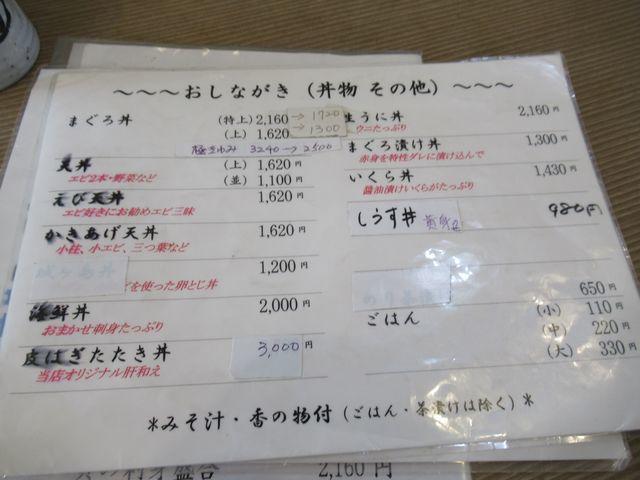 ～～～おしながき（丼物 その他）～～～
まぐろ丼 （特上）2,160 → 1720
（上）1,620 → 1300
極きわみ 3240 → 2500
天丼 （上）1,620円
エビ2本・野菜など （並）1,100円
えび天丼 1,620円
エビ好きにお勧めエビ三昧
かきあげ天丼 1,620円
小柱、小エビ、三つ葉など
1,200円
を使った卵とじ丼
海鮮丼 2,000円
おまかせ刺身たっぷり
皮はぎたたき丼 3,000円
当店オリジナル肝和え
生うに丼 2,160円
ウニたっぷり
まぐろ漬け丼 1,300円
赤身を特性ダレに漬け込んで
いくら丼 1,430円
醤油漬けいくらがたっぷり
しらす丼 980円
650円
ごはん （小）110円
（中）220円
（大）330円
＊みそ汁・香の物付（ごはん・茶漬けは除く）＊
2,160円